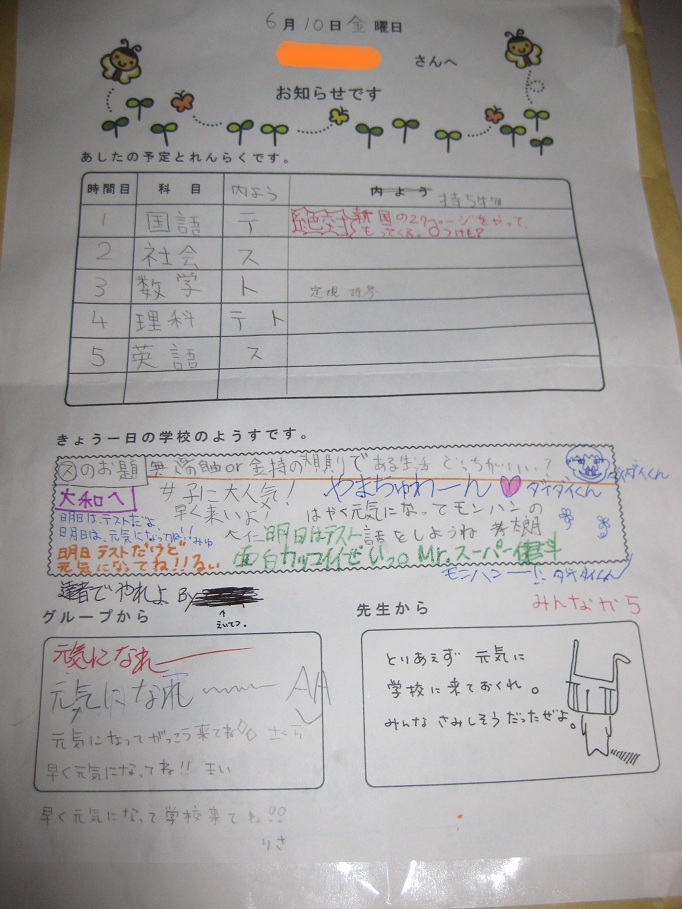 6月10日金曜日
さんへ
お知らせです
あしたの予定とれんらくです。
時間目 科目 内よう 内よう 持ち物
1 国語 テ 絶対 国の27ページをやって、
もってくる。
2 社会 ス
3 数学 ト 定規
4 理科 テト
5 英語 ス
きょう一日の学校のようすです。
のお題 or 金持の 規則で ある生活 どっちがいい?
大和へ 女子に大人気! やまちゅわーん♡ ダイダイくん
早く来いよ! はやく元気になってモンハンの
明日は、テストだよ
元気になってね!! みゆ
大仁 明日はテスト 話をしようね
明日テストだけど
元気になってね!!るい
面白カッコイイぜ いっ。Mr.スーパー
モンハンー!! ダイダイくん
達者でやれよ By
えいてつ。
みんなから
グループから
元気になれ
元気になれ
元気になってがっこう来てね さくら
早く元気になってね!! まい
早く元気になって学校来てね!!
りさ
先生から
とりあえず 元気に
学校に来ておくれ。
みんな さみしそうだったぜよ。